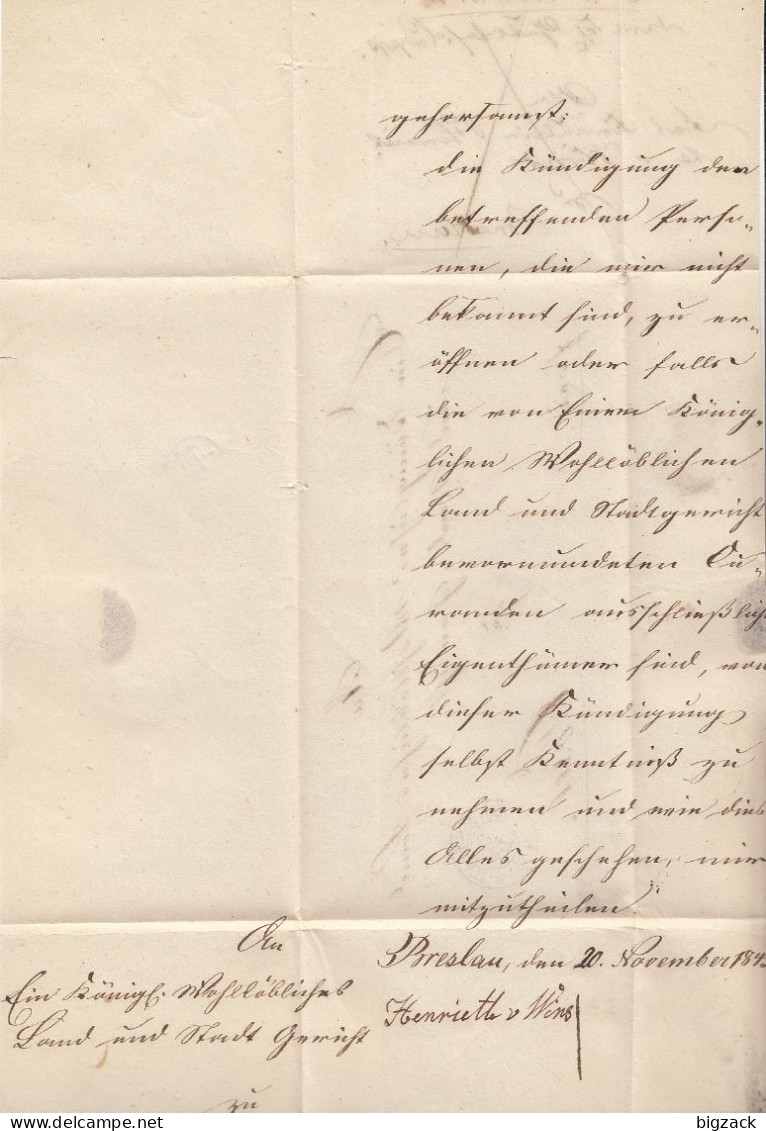 gehorsamst:
die Kündigung den
betreffenden Perso-
nen, die mir nicht
bekannt sind, zu er-
öffnen oder falls
die von Einem König-
lichen Wohllöblichen
Land und Stadtgericht
bevormundeten Cu-
randen ausschließlich
Eigenthümer sind, von
dieser Kündigung
selbst Kenntniß zu
nehmen und wie dies
Alles geschehen, mir
mitzutheilen.
Breslau, den 20. November 184
Henriette v Wins
An
Ein Königl. Wohllöbliches
Land und Stadt Gericht
zu
bigzack